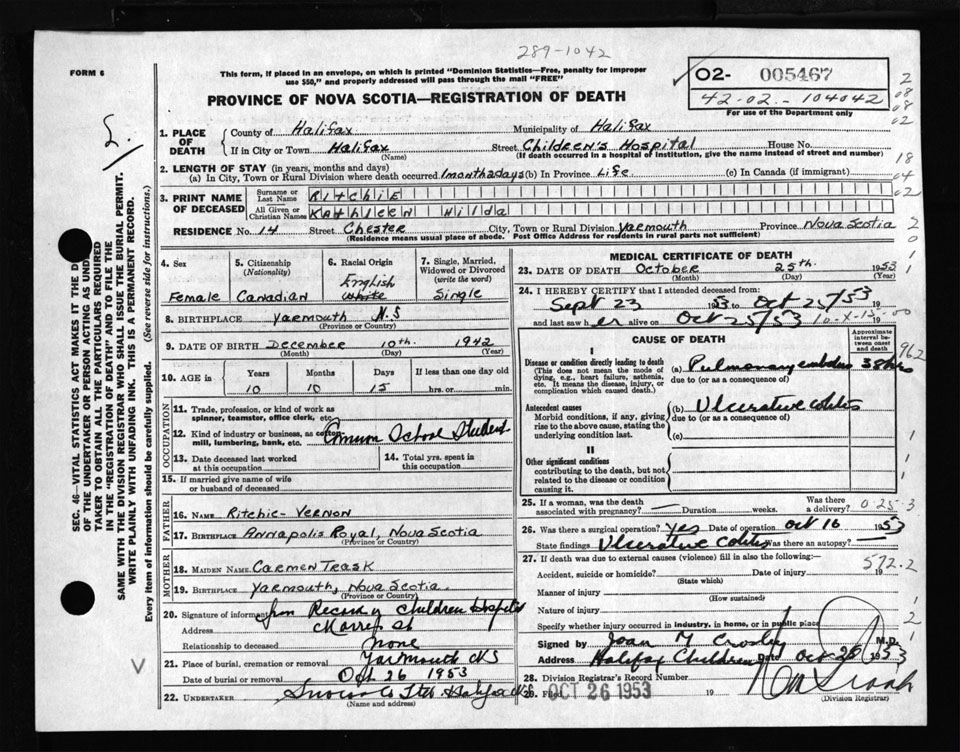 289-1042
FORM 6
This form, if placed in an envelope, on which is printed "Dominion Statistics—Free, penalty for improper
use $50," and properly addressed will pass through the mail "FREE"
PROVINCE OF NOVA SCOTIA—REGISTRATION OF DEATH
O2- 005467
42-02.-104042
For use of the Department only
1. PLACE OF DEATH
County of Halifax Municipality of Halifax
If in City or Town Halifax Street Children's Hospital House No.
(Name) (If death occurred in a hospital of institution, give the name instead of street and number)
2. LENGTH OF STAY (in years, months and days)
(a) In City, Town or Rural Division where death occurred 1month2days (b) In Province Life (c) In Canada (if immigrant)
3. PRINT NAME OF DECEASED
Surname or Last Name RITCHIE
All Given or Christian Names Kathleen Hilda
RESIDENCE No. 14 Street Chester City, Town or Rural Division Yarmouth Province Nova Scotia
(Residence means usual place of abode. Post Office Address for residents in rural parts not sufficient)
4. Sex
Female
5. Citizenship
(Nationality)
Canadian
6. Racial Origin
English
White
7. Single, Married,
Widowed or Divorced
(write the word)
Single
8. BIRTHPLACE Yarmouth N.S
(Province or Country)
9. DATE OF BIRTH December 10th. 1942
(Month) (Day) (Year)
10. AGE in
Years Months Days If less than one day old
10 10 15 hrs. or min.
OCCUPATION
11. Trade, profession, or kind of work as
spinner, teamster, office clerk, etc.
12. Kind of industry or business, as cotton-
mill, lumbering, bank, etc. Common School Student
13. Date deceased last worked
at this occupation
14. Total yrs. spent in
this occupation
15. If married give name of wife
or husband of deceased
FATHER
16. NAME Ritchie - Vernon
17. BIRTHPLACE Annapolis Royal, Nova Scotia
(Province or Country)
MOTHER
18. MAIDEN NAME Carmen Trask
19. BIRTHPLACE Yarmouth, Nova Scotia
(Province or Country)
20. Signature of informant from Record of Children Hospital
Address
Relationship to deceased None
21. Place of burial, cremation or removal Yarmouth NS
Date of burial or removal Oct 26 1953
22. UNDERTAKER Snow & Halifax NS
(Name and address)
MEDICAL CERTIFICATE OF DEATH
23. DATE OF DEATH October 25th. 1953
(Month) (Day)
24. I HEREBY CERTIFY that I attended deceased from:
Sept 23 1953 to Oct 25/53 19
and last saw h er alive on Oct 25/53 19
CAUSE OF DEATH
Approximate
interval be-
tween onset
and death
I
Disease or condition directly leading to death
(This does not mean the mode of
dying, e.g., heart failure, asthenia,
etc. It means the disease, injury, or
complication which caused death.
(a) Pulmonary embolus 38 hrs
due to (or as a consequence of)
Antecedent causes
Morbid conditions, if any, giving
rise to the above cause, stating the
underlying condition last.
(b) Ulcerative colitis
due to (or as a consequence of)
(c)
II
Other significant conditions
contributing to the death, but not
related to the disease or condition
causing it.
25. If a woman, was the death
associated with pregnancy? — Duration weeks. Was there
a delivery? 0-25-3
26. Was there a surgical operation? yes Date of operation Oct 16 1953
State findings Ulcerative Colitis Was there an autopsy? —
27. If death was due to external causes (violence) fill in also the following:—
Accident, suicide or homicide? Date of injury 19
572.2
(State which)
Manner of injury
(How sustained)
Nature of injury
Specify whether injury occurred in industry, in home, or in public place
Signed by Joan Y Crosby M.D.
Address Halifax Children Date Oct 26 1953
28. Division Registrar's Record Number
29. Filed OCT 26 1953 19
(Division Registrar)
SEC. 46—VITAL STATISTICS ACT MAKES IT THE D
OF THE UNDERTAKER OR PERSON ACTING AS UNDER
TAKER TO OBTAIN ALL THE PARTICULARS REQUIRED
IN THE "REGISTRATION OF DEATH" AND TO FILE THE
SAME WITH THE DIVISION REGISTRAR WHO SHALL ISSUE THE BURIAL PERMIT.
WRITE PLAINLY WITH UNFADING INK. THIS IS A PERMANENT RECORD.
Every item of information should be carefully supplied. (See reverse side for instructions.)